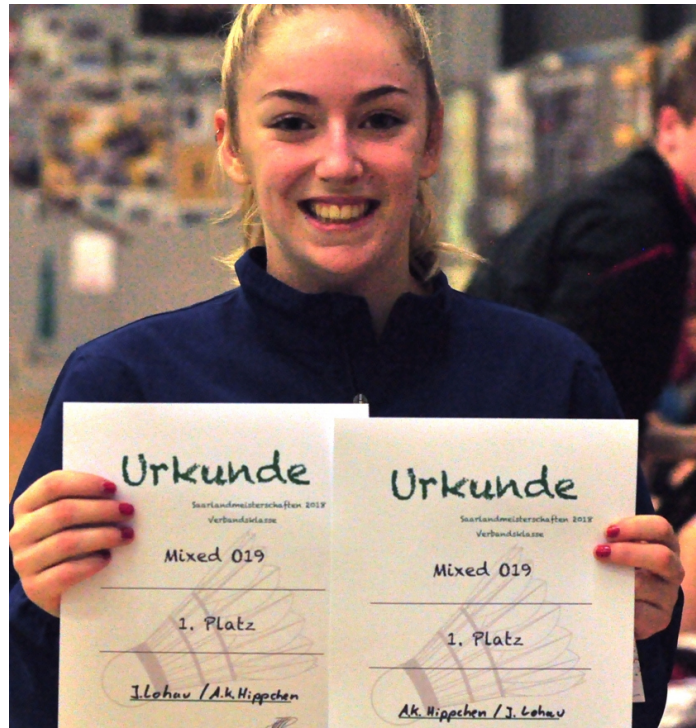 Urkunde
Saarlandmeisterschaften 2018
Verbandsklasse
Mixed O19
1. Platz
J.Lohau / A.K.Hippchen
Urkunde
Saarlandmeisterschaften 2018
Verbandsklasse
Mixed O19
1. Platz
A.K. Hippchen / J. Lohau